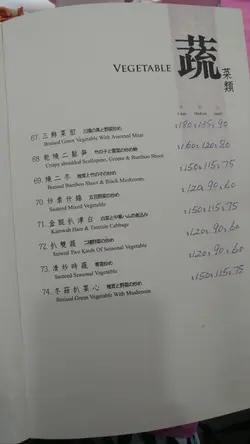 VEGETABLE 蔬菜類
大 中 小
Large Medium Small
67. 三鮮菜甜
Braised Green Vegetable With Assorted Meat
180 135 90
68. 乾燒二鬆筍
Crispy shredded Scallopsoy, Greens & Bamboo Shoot
160 120 80
69. 燒二冬
Braised Bamboo Shoot & Black Mushroom
150 115 75
70. 炒素什錦 五目野菜の炒め
Sauteed Mixed Vegetable
120 90 60
71. 金腿扒津白
Kamwah Ham & Tientsin Cabbage
150 115 75
72. 扒雙蔬 二種野菜の炒め
Stewed Two Kinds Of Seasonal Vegetable
120 90 60
73. 清炒時蔬 青菜炒め
Sauteed Seasonal Vegetable
120 90 60
74. 冬菇扒菜心 椎茸と野菜の炒め
Braised Green Vegetable With Mushroom
150 115 75